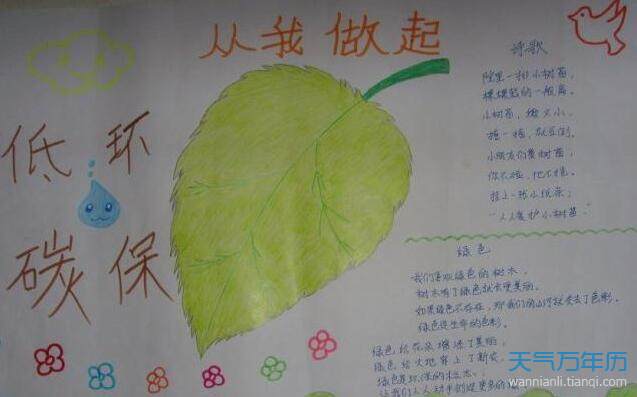 从我做起
低环
碳保
诗歌
院里一排小树苗，
棵棵长的一般高。
小树苗，嫩又小，
碰一碰，就弯倒。
小朋友们爱树苗，
你不碰，他不摇。
挂上一张小纸条：
"人人爱护小树苗"
绿色
我们喜欢绿色的树木，
树木有了绿色就会更美丽。
如果绿色不存在，那我们的山河就失去了色彩。
绿色是生命的色彩。
绿色给花朵增添了美丽，
绿色给大地穿上了新衣，
绿色是环保的标志，
让我们人人动手创造更多的
天气万年历
wannianli.tianqi.com